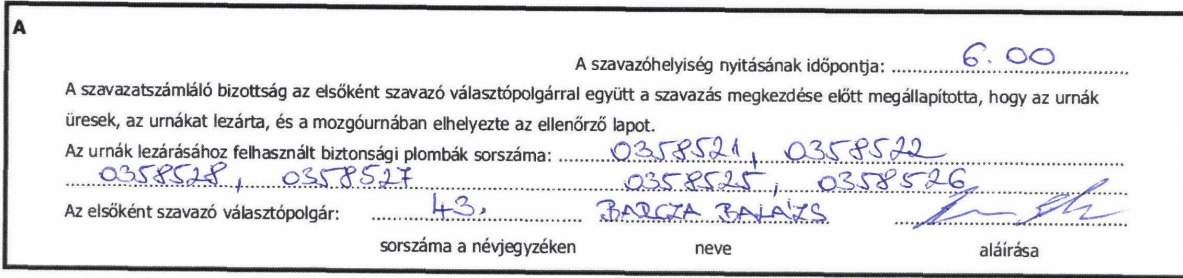 A
A szavazóhelyiség nyitásának időpontja: 6.00
A szavazatszámláló bizottság az elsőként szavazó választópolgárral együtt a szavazás megkezdése előtt megállapította, hogy az urnák
üresek, az urnákat lezárta, és a mozgóurnában elhelyezte az ellenőrző lapot.
Az urnák lezárásához felhasznált biztonsági plombák sorszáma: 0358521, 0358522
0358528, 0358527 0358525, 0358526
Az elsőként szavazó választópolgár: 43. BARCZA BALÁZS
sorszáma a névjegyzéken neve aláírása